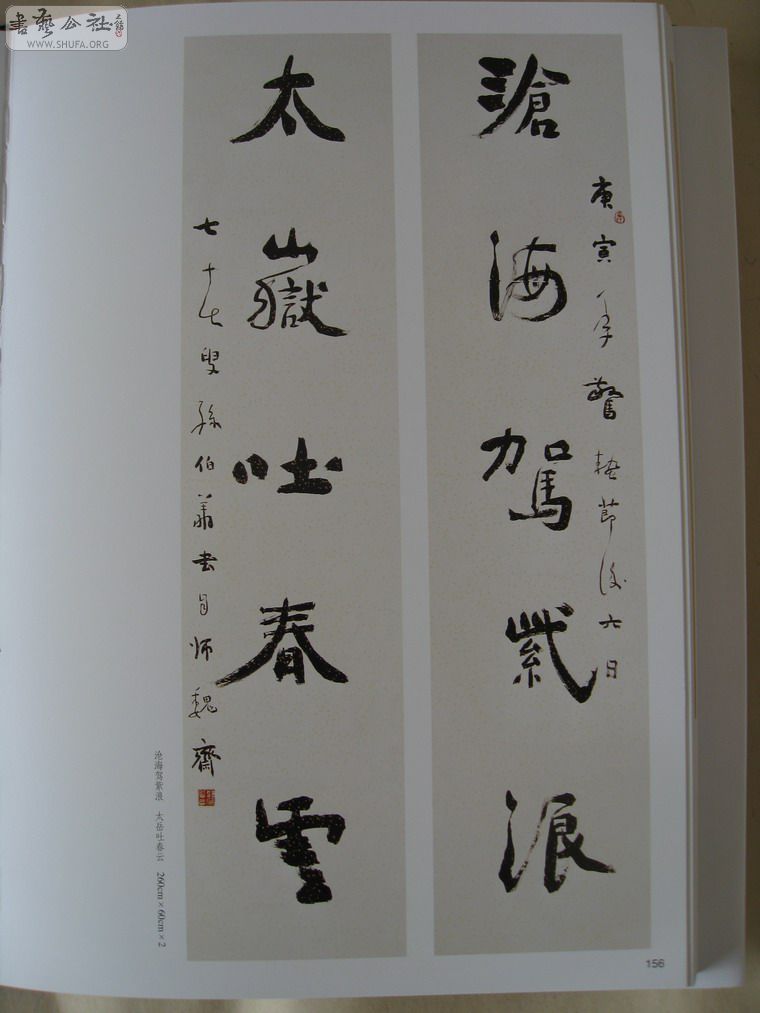 書藝公社
WWW.SHUFA.ORG
滄海駕紫浪
庚寅年驚蟄節後六日
太嶽吐春雲
七十七叟孫伯翔書於師魏齋
沧海驾紫浪 太岳吐春云 260cm×60cm×2
156